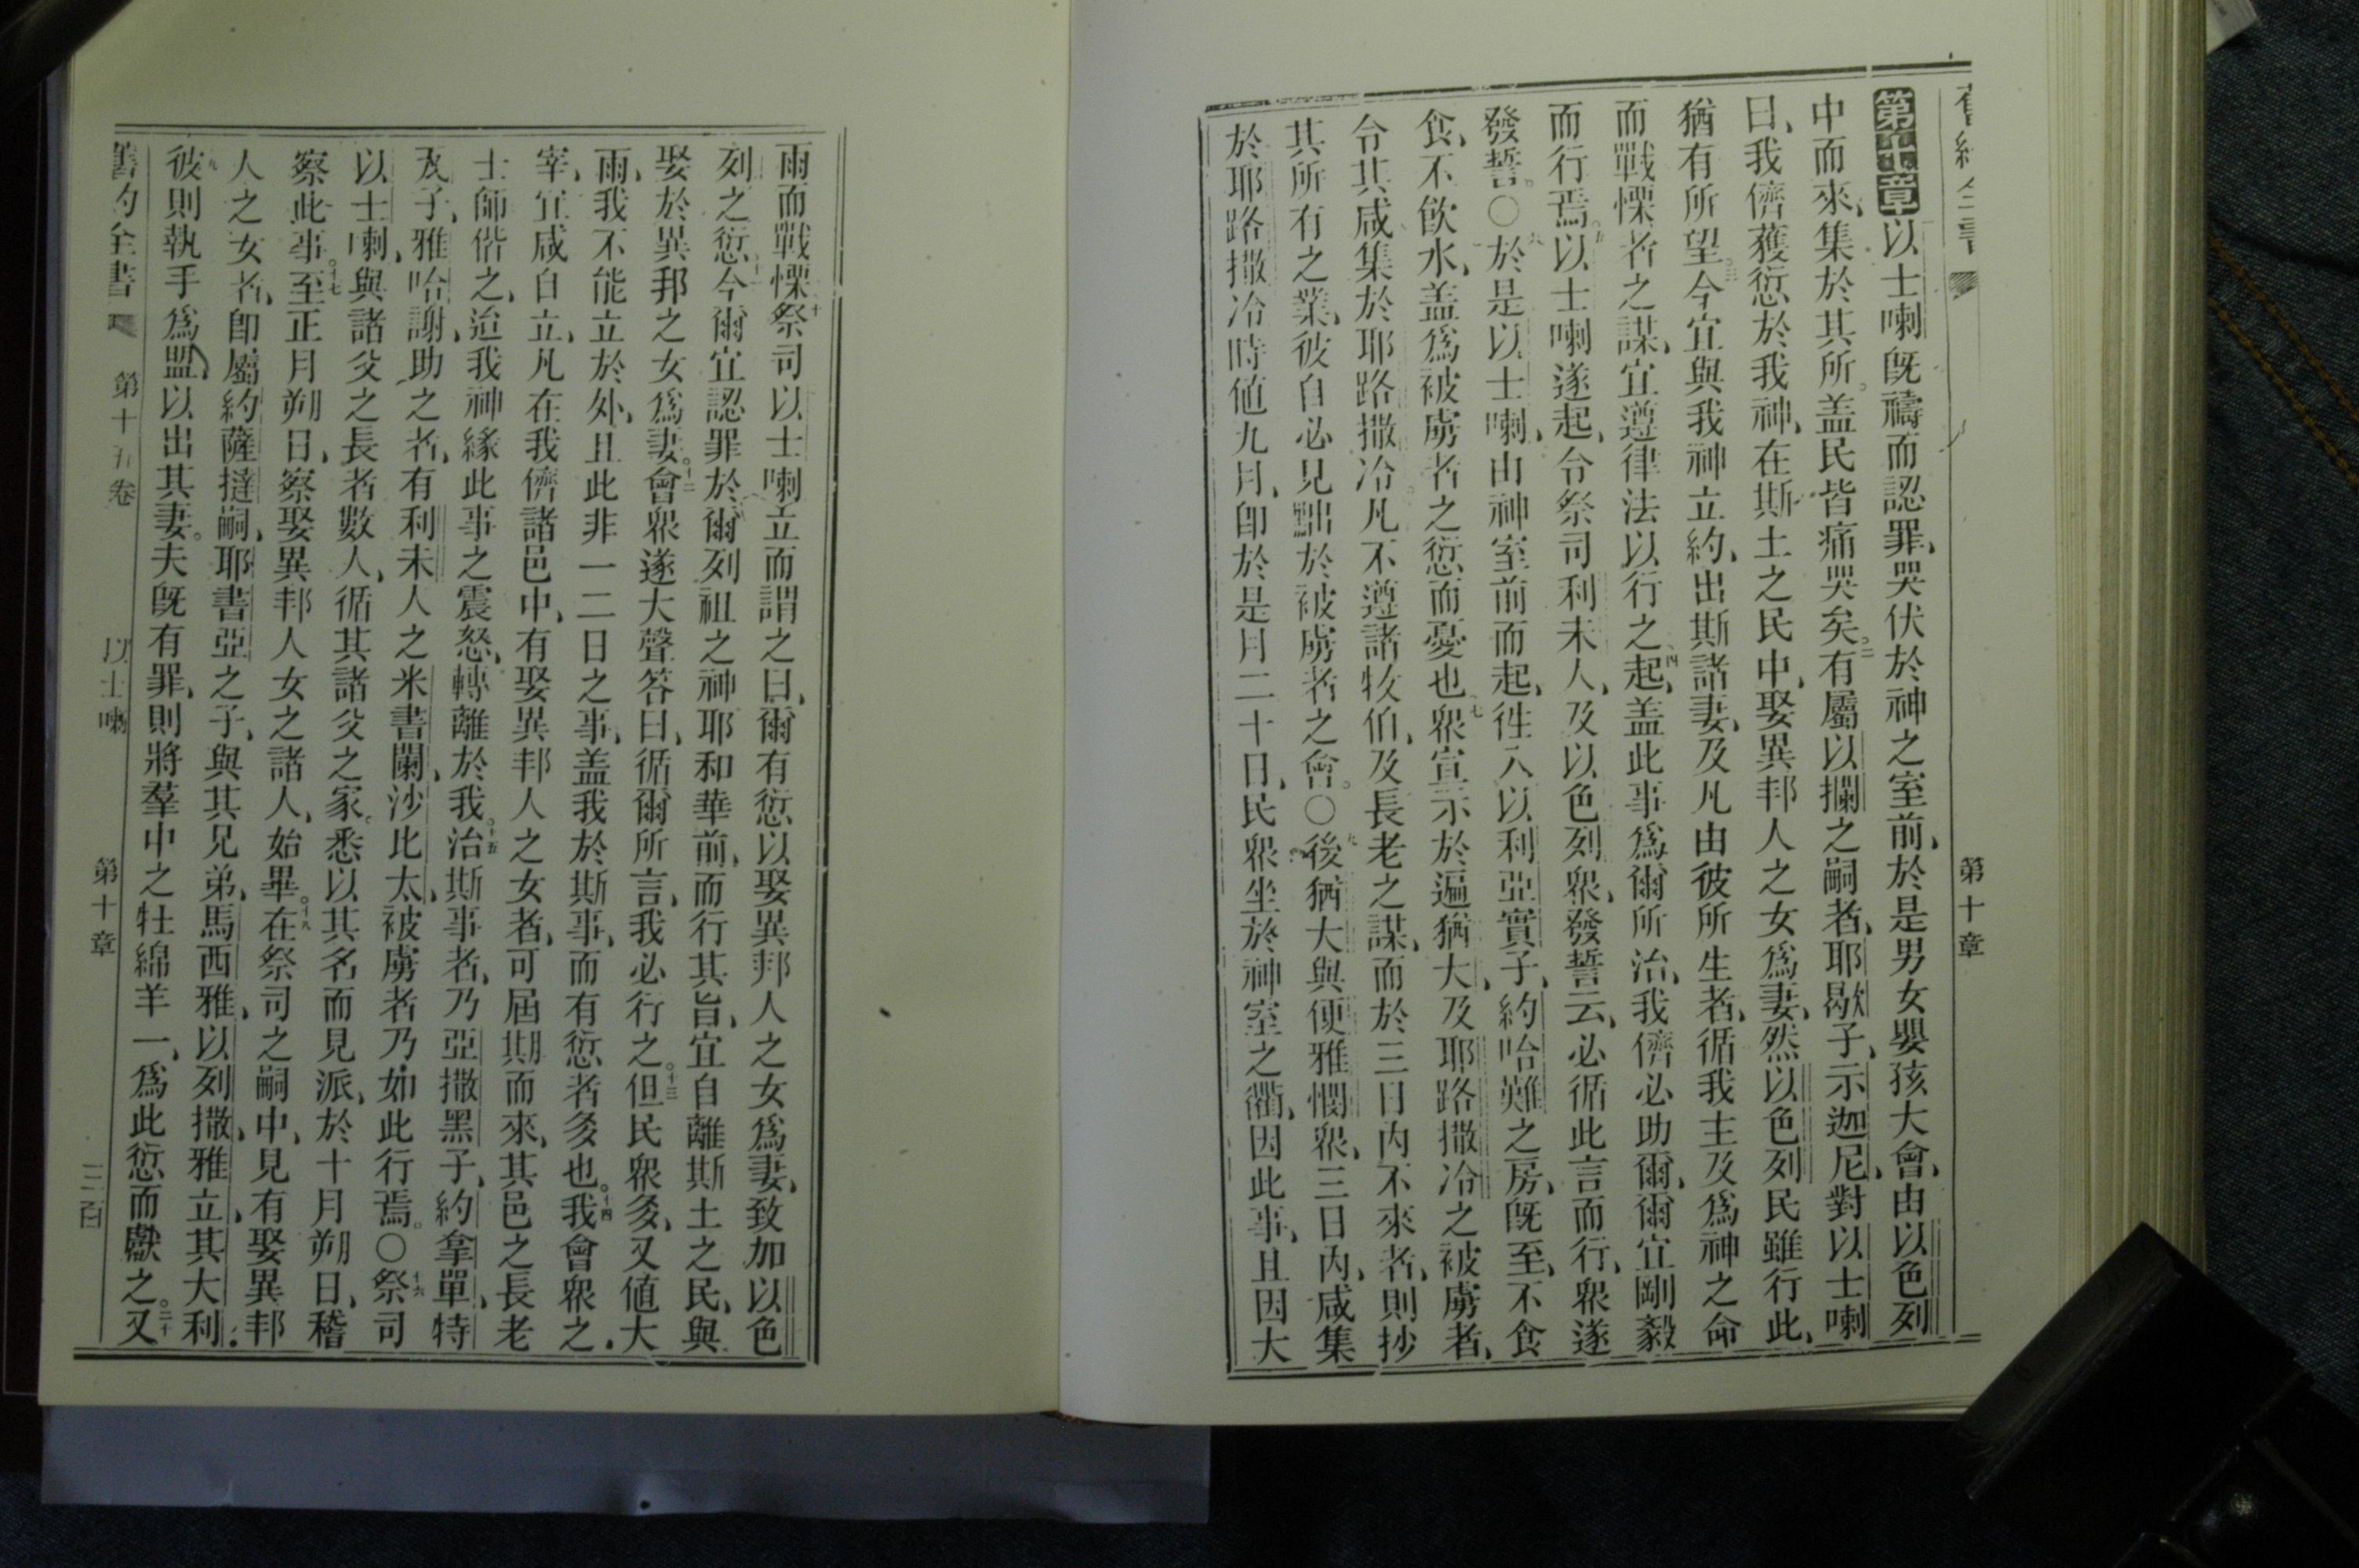 舊約全書 第十章
第十章以士喇旣禱而認罪、哭伏於神之室前、於是男女嬰孩大會、由以色列
中而來、集於其所。盖民皆痛哭矣。二有屬以攔之嗣者、耶歇子、示迦尼、對以士喇
曰、我儕獲愆於我神、在斯土之民中、娶異邦人之女爲妻、然以色列民雖行此、
猶有所望。三今宜與我神立約、出斯諸妻、及凡由彼所生者、循我主及爲神之命
而戰慄者之謀、宜遵律法以行之。四起、盖此事爲爾所治、我儕必助爾、爾宜剛毅
而行焉。五以士喇遂起、令祭司利未人、及以色列衆、發誓云、必循此言而行、衆遂
發誓。○六於是以士喇、由神室前而起、徃入以利亞實子、約哈難之房、旣至、不食
食、不飮水、盖爲被虜者之愆而憂也。七衆宣示於遍猶大、及耶路撒冷之被虜者、
令其咸集於耶路撒冷。八凡不遵諸牧伯、及長老之謀、而於三日內不來者、則抄
其所有之業、彼自必見黜於被虜者之會。○九後猶大與便雅憫衆、三日內、咸集
於耶路撒冷時値九月、卽於是月二十日、民衆坐於神室之衢、因此事、且因大
雨而戰慄。十祭司以士喇立而謂之曰、爾有愆以娶異邦人之女爲妻、致加以色
列之愆。十一今爾宜認罪於爾列祖之神耶和華前、而行其旨、宜自離斯土之民、與
娶於異邦之女爲妻。十二會衆遂大聲答曰、循爾所言、我必行之。十三但民衆多、又値大
雨、我不能立於外、且此非一二日之事、盖我於斯事、而有愆者多也。十四我會衆之
宰、宜咸自立、凡在我儕諸邑中、有娶異邦人之女者、可屆期而來、其邑之長老
士師偕之、迨我神緣此事之震怒、轉離於我。十五治斯事者、乃亞撒黑子、約拿單、特
瓦子、雅哈謝、助之者、有利未人之米書闌、沙比太、被虜者乃如此行焉。○十六祭司
以士喇、與諸父之長者數人、循其諸父之家。悉以其名而見派、於十月朔日、稽
察此事。十七至正月朔日、察娶異邦人女之諸人、始畢。十八在祭司之嗣中、見有娶異邦
人之女者、卽屬約薩撻嗣、耶書亞之子、與其兄弟、馬西雅、以列撒、雅立、其大利、
九彼則執手爲盟、以出其妻。夫旣有罪、則將羣中之牡綿羊一、爲此愆而獻之。二十又
舊約全書 第十五卷 以士喇 第十章 三百